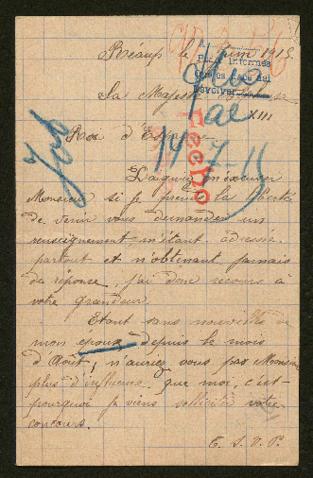 Béarp le 7 Juin 1915
Para informes
devolver
Sa Majesté
XIII
Roi d'Espagne
14-7-15
Fecho
Daignez m'excuser
Monsieur si je prends la liberté
de venir vous demander un
renseignement m'étant adressée
partout et n'obtenant jamais
de réponse, j'ai donc recours à
votre grandeur.
Etant sans nouvelles de
mon époux depuis le mois
d'Août, n'auriez vous pas Monsieur
plus d'influence que moi, c'est
pourquoi je viens solliciter votre
concours.
T. S. V. P.